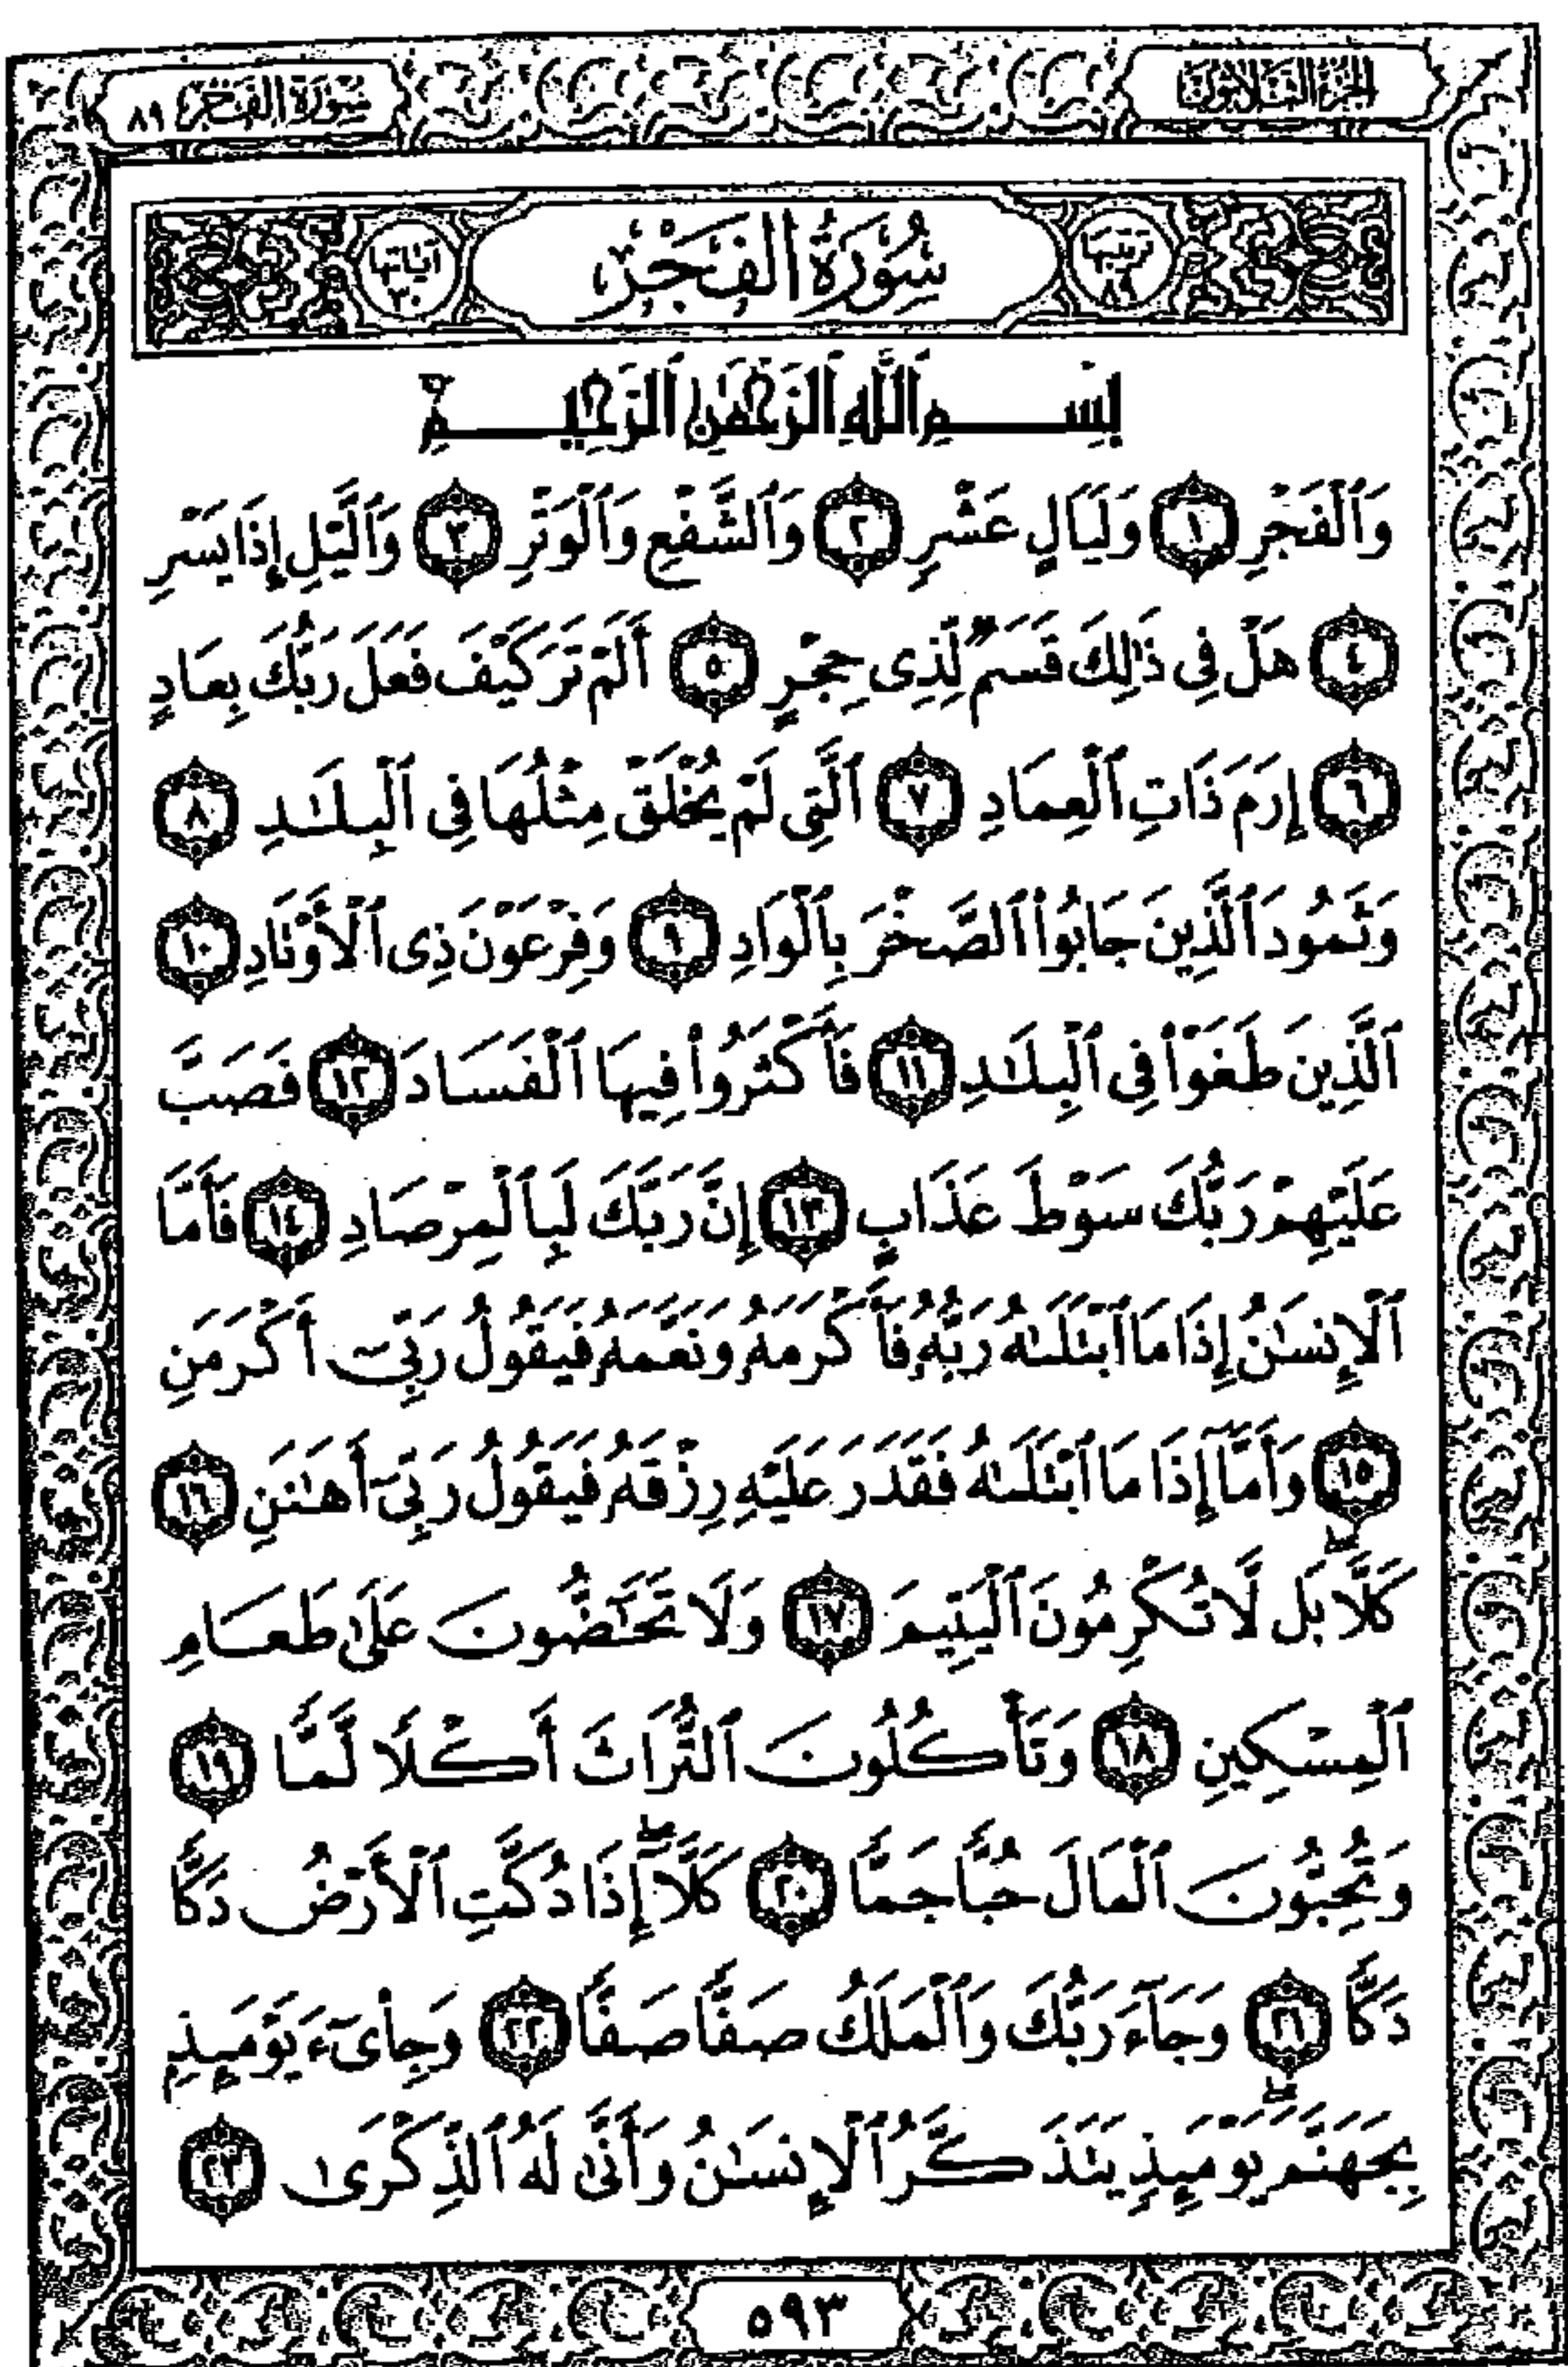 الجزء الثلاثون
سورة الفجر ٨٩
ترتيبها ٨٩
سُورَةُ الفَجْرِ
آياتها ٣٠
بِسْمِ ٱللَّهِ ٱلرَّحْمَٰنِ ٱلرَّحِيمِ
وَٱلْفَجْرِ ١ وَلَيَالٍ عَشْرٍ ٢ وَٱلشَّفْعِ وَٱلْوَتْرِ ٣ وَٱلَّيْلِ إِذَا يَسْرِ
٤ هَلْ فِى ذَٰلِكَ قَسَمٌ لِّذِى حِجْرٍ ٥ أَلَمْ تَرَ كَيْفَ فَعَلَ رَبُّكَ بِعَادٍ
٦ إِرَمَ ذَاتِ ٱلْعِمَادِ ٧ ٱلَّتِى لَمْ يُخْلَقْ مِثْلُهَا فِى ٱلْبِلَٰدِ ٨
وَثَمُودَ ٱلَّذِينَ جَابُوا۟ ٱلصَّخْرَ بِٱلْوَادِ ٩ وَفِرْعَوْنَ ذِى ٱلْأَوْتَادِ ١٠
ٱلَّذِينَ طَغَوْا۟ فِى ٱلْبِلَٰدِ ١١ فَأَكْثَرُوا۟ فِيهَا ٱلْفَسَادَ ١٢ فَصَبَّ
عَلَيْهِمْ رَبُّكَ سَوْطَ عَذَابٍ ١٣ إِنَّ رَبَّكَ لَبِٱلْمِرْصَادِ ١٤ فَأَمَّا
ٱلْإِنسَٰنُ إِذَا مَا ٱبْتَلَىٰهُ رَبُّهُۥ فَأَكْرَمَهُۥ وَنَعَّمَهُۥ فَيَقُولُ رَبِّىٓ أَكْرَمَنِ
١٥ وَأَمَّآ إِذَا مَا ٱبْتَلَىٰهُ فَقَدَرَ عَلَيْهِ رِزْقَهُۥ فَيَقُولُ رَبِّىٓ أَهَٰنَنِ ١٦
كَلَّا ۖ بَل لَّا تُكْرِمُونَ ٱلْيَتِيمَ ١٧ وَلَا تَحَٰٓضُّونَ عَلَىٰ طَعَامِ
ٱلْمِسْكِينِ ١٨ وَتَأْكُلُونَ ٱلتُّرَاثَ أَكْلًا لَّمًّا ١٩
وَتُحِبُّونَ ٱلْمَالَ حُبًّا جَمًّا ٢٠ كَلَّآ ۖ إِذَا دُكَّتِ ٱلْأَرْضُ دَكًّا
دَكًّا ٢١ وَجَآءَ رَبُّكَ وَٱلْمَلَكُ صَفًّا صَفًّا ٢٢ وَجِا۟ىٓءَ يَوْمَئِذٍۭ
بِجَهَنَّمَ ۚ يَوْمَئِذٍ يَتَذَكَّرُ ٱلْإِنسَٰنُ وَأَنَّىٰ لَهُ ٱلذِّكْرَىٰ ٢٣
٥٩٣